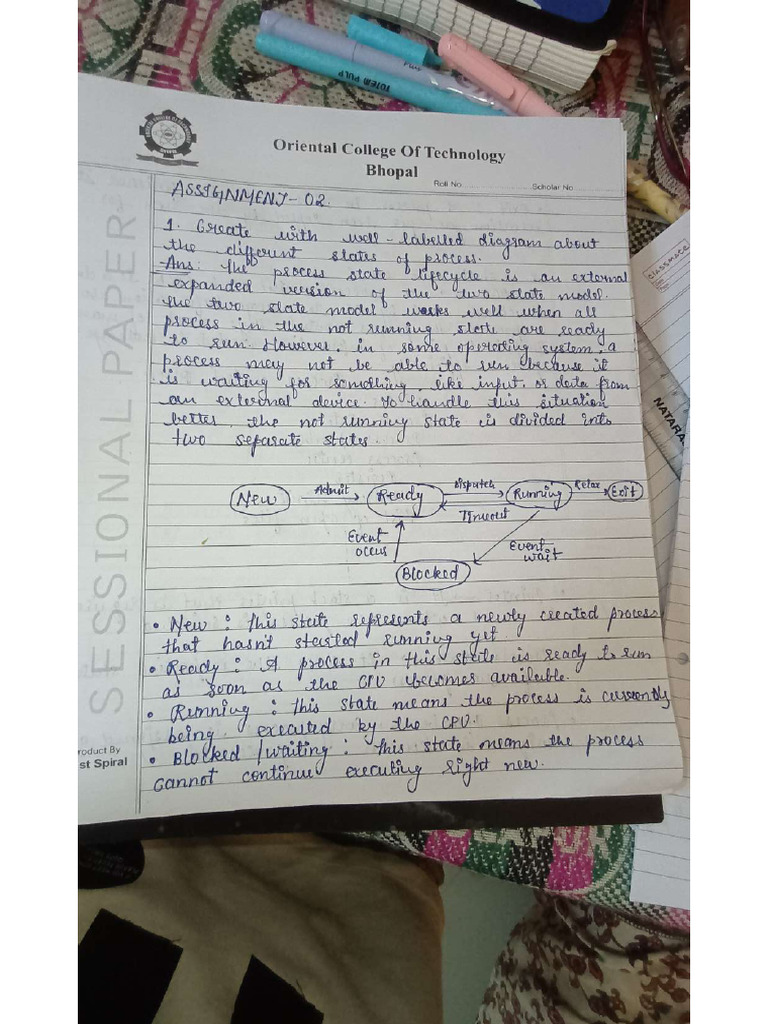 TOTEM PULP
Oriental College Of Technology
Bhopal
Roll No. Scholar No
ASSIGNMENT-02.
1. Create with well-labelled diagram about
the different states of process.
Ans: The process state lifecycle is an external
expanded version of the two state model.
The two state model works well when all
process in the not running state are ready
to run. However, in some operating system, a
process may not be able to run because it
is waiting for something like input or data from
an external device. To handle this situation
better the not running state is divided into
two separate states.
New
Admit
Ready
Dispatch
Timeout
Running
Relax
Exit
Event
occus
Event
wait
Blocked
• New : This state represents a newly created process
that hasn't started running yet.
• Ready : A process in this state is ready to run
as soon as the CPU becomes available.
• Running : This state means the process is currently
being executed by the CPU.
• Blocked /waiting : This state means the process
cannot continue executing right new.
SESSIONAL PAPER
roduct By
st Spiral
classmate
NATARA